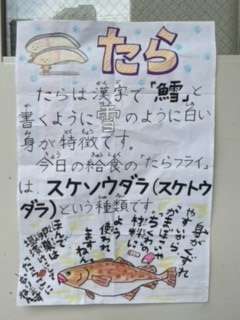 たら
たらは漢字で「鱈」と
書くように雪のように白い
身が特徴です。
今日の給食の「たらフライ」
は スケソウダラ(スケトウ
ダラ)という種類です。
身がくずれ
やすいから
かまぼこや
ちくわの
材料に
よう
使われ
ますねん